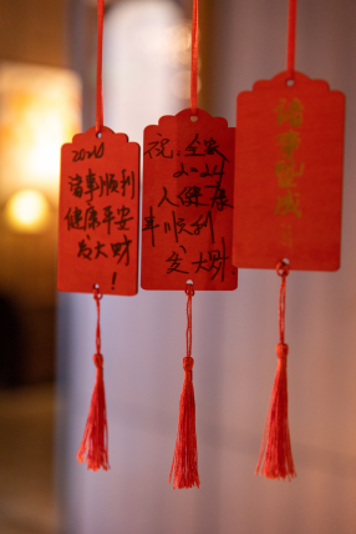 诸事顺利
健康平安
发大财
!
祝:全家
2024
人健康
年顺利
发大财
诸事